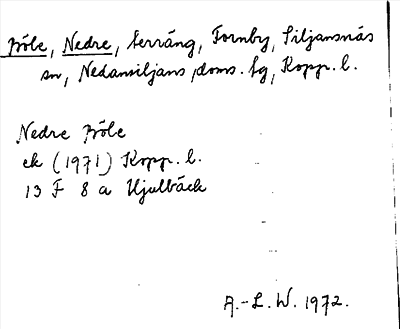 Pöle, Nedre, terräng, Fornby, Siljansnäs
sn, Nedansiljans doms. tg, Kopp. l.
Nedre Pöle
ek (1971) Kopp. l.
13 F 8 a Hjulbäck
A.-L. W. 1972.